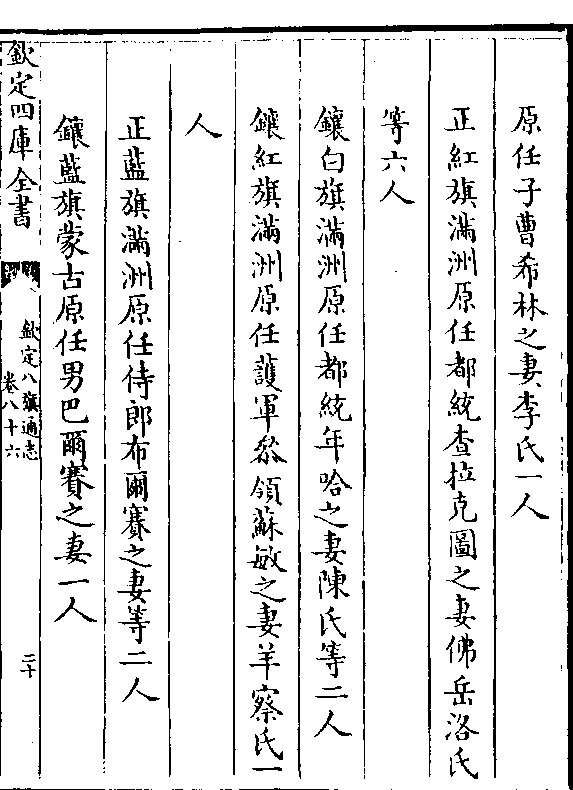 原任子曹希林之妻李氏一人
正紅旗滿洲原任都統查拉克圖之妻佛岳洛氏
等六人
鑲白旗滿洲原任都統年哈之妻陳氏等二人
鑲紅旗滿洲原任護軍叅領蘇敏之妻羊察氏一
人
正藍旗滿洲原任侍郎布爾賽之妻等二人
鑲藍旗蒙古原任男巴爾賽之妻一人
欽定四庫全書
欽定八旗通志
卷八十六
二十